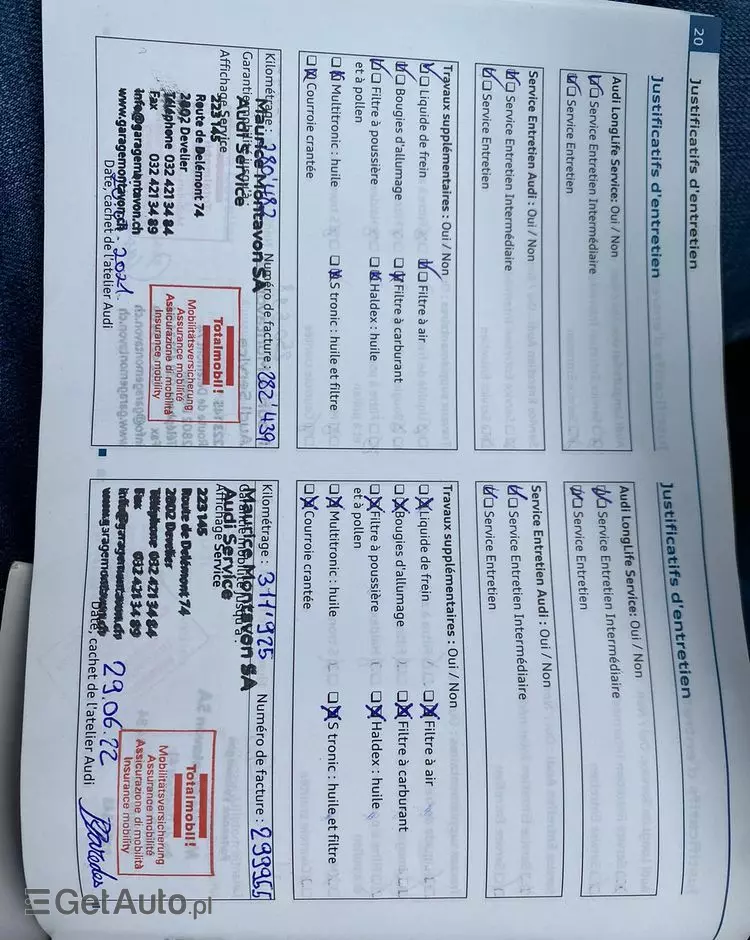 20
Justificatifs d'entretien
Justificatifs d'entretien
Audi LongLife Service: Oui / Non
Service Entretien Intermédiaire
Service Entretien
Service Entretien Audi : Oui / Non
Service Entretien Intermédiaire
Service Entretien
Travaux supplémentaires : Oui / Non
Liquide de frein
Filtre à air
Bougies d'allumage
Filtre à carburant
Filtre à poussière
et à pollen
Haldex : huile
Multitronic : huile
S tronic : huile et filtre
Courroie crantée
Kilométrage : 280'482 Numéro de facture : 282'439
Maurice Montavon SA
Audi Service
Affichage Service
223 145
Route de Delémont 74
2802 Develier
Téléphone 032 421 34 84
Fax 032 421 34 89
info@garagemontavon.ch
www.garagemontavon.ch
2021
Date, cachet de l'atelier Audi
Totalmobil!
Mobilitätsversicherung
Assurance mobilité
Assicurazione di mobilità
Insurance mobility
Justificatifs d'entretien
Audi LongLife Service: Oui / Non
Service Entretien Intermédiaire
Service Entretien
Service Entretien Audi : Oui / Non
Service Entretien Intermédiaire
Service Entretien
Travaux supplémentaires : Oui / Non
Liquide de frein
Filtre à air
Bougies d'allumage
Filtre à carburant
Filtre à poussière
et à pollen
Haldex : huile
Multitronic : huile
S tronic : huile et filtre
Courroie crantée
Kilométrage : 311'925 Numéro de facture : 299965
Maurice Montavon SA
Audi Service
Affichage Service
223 145
Route de Delémont 74
2802 Develier
Téléphone 032 421 34 84
Fax 032 421 34 89
info@garagemontavon.ch
www.garagemontavon.ch
29.06.22
Date, cachet de l'atelier Audi
Totalmobil!
Mobilitätsversicherung
Assurance mobilité
Assicurazione di mobilità
Insurance mobility
GetAuto.pl